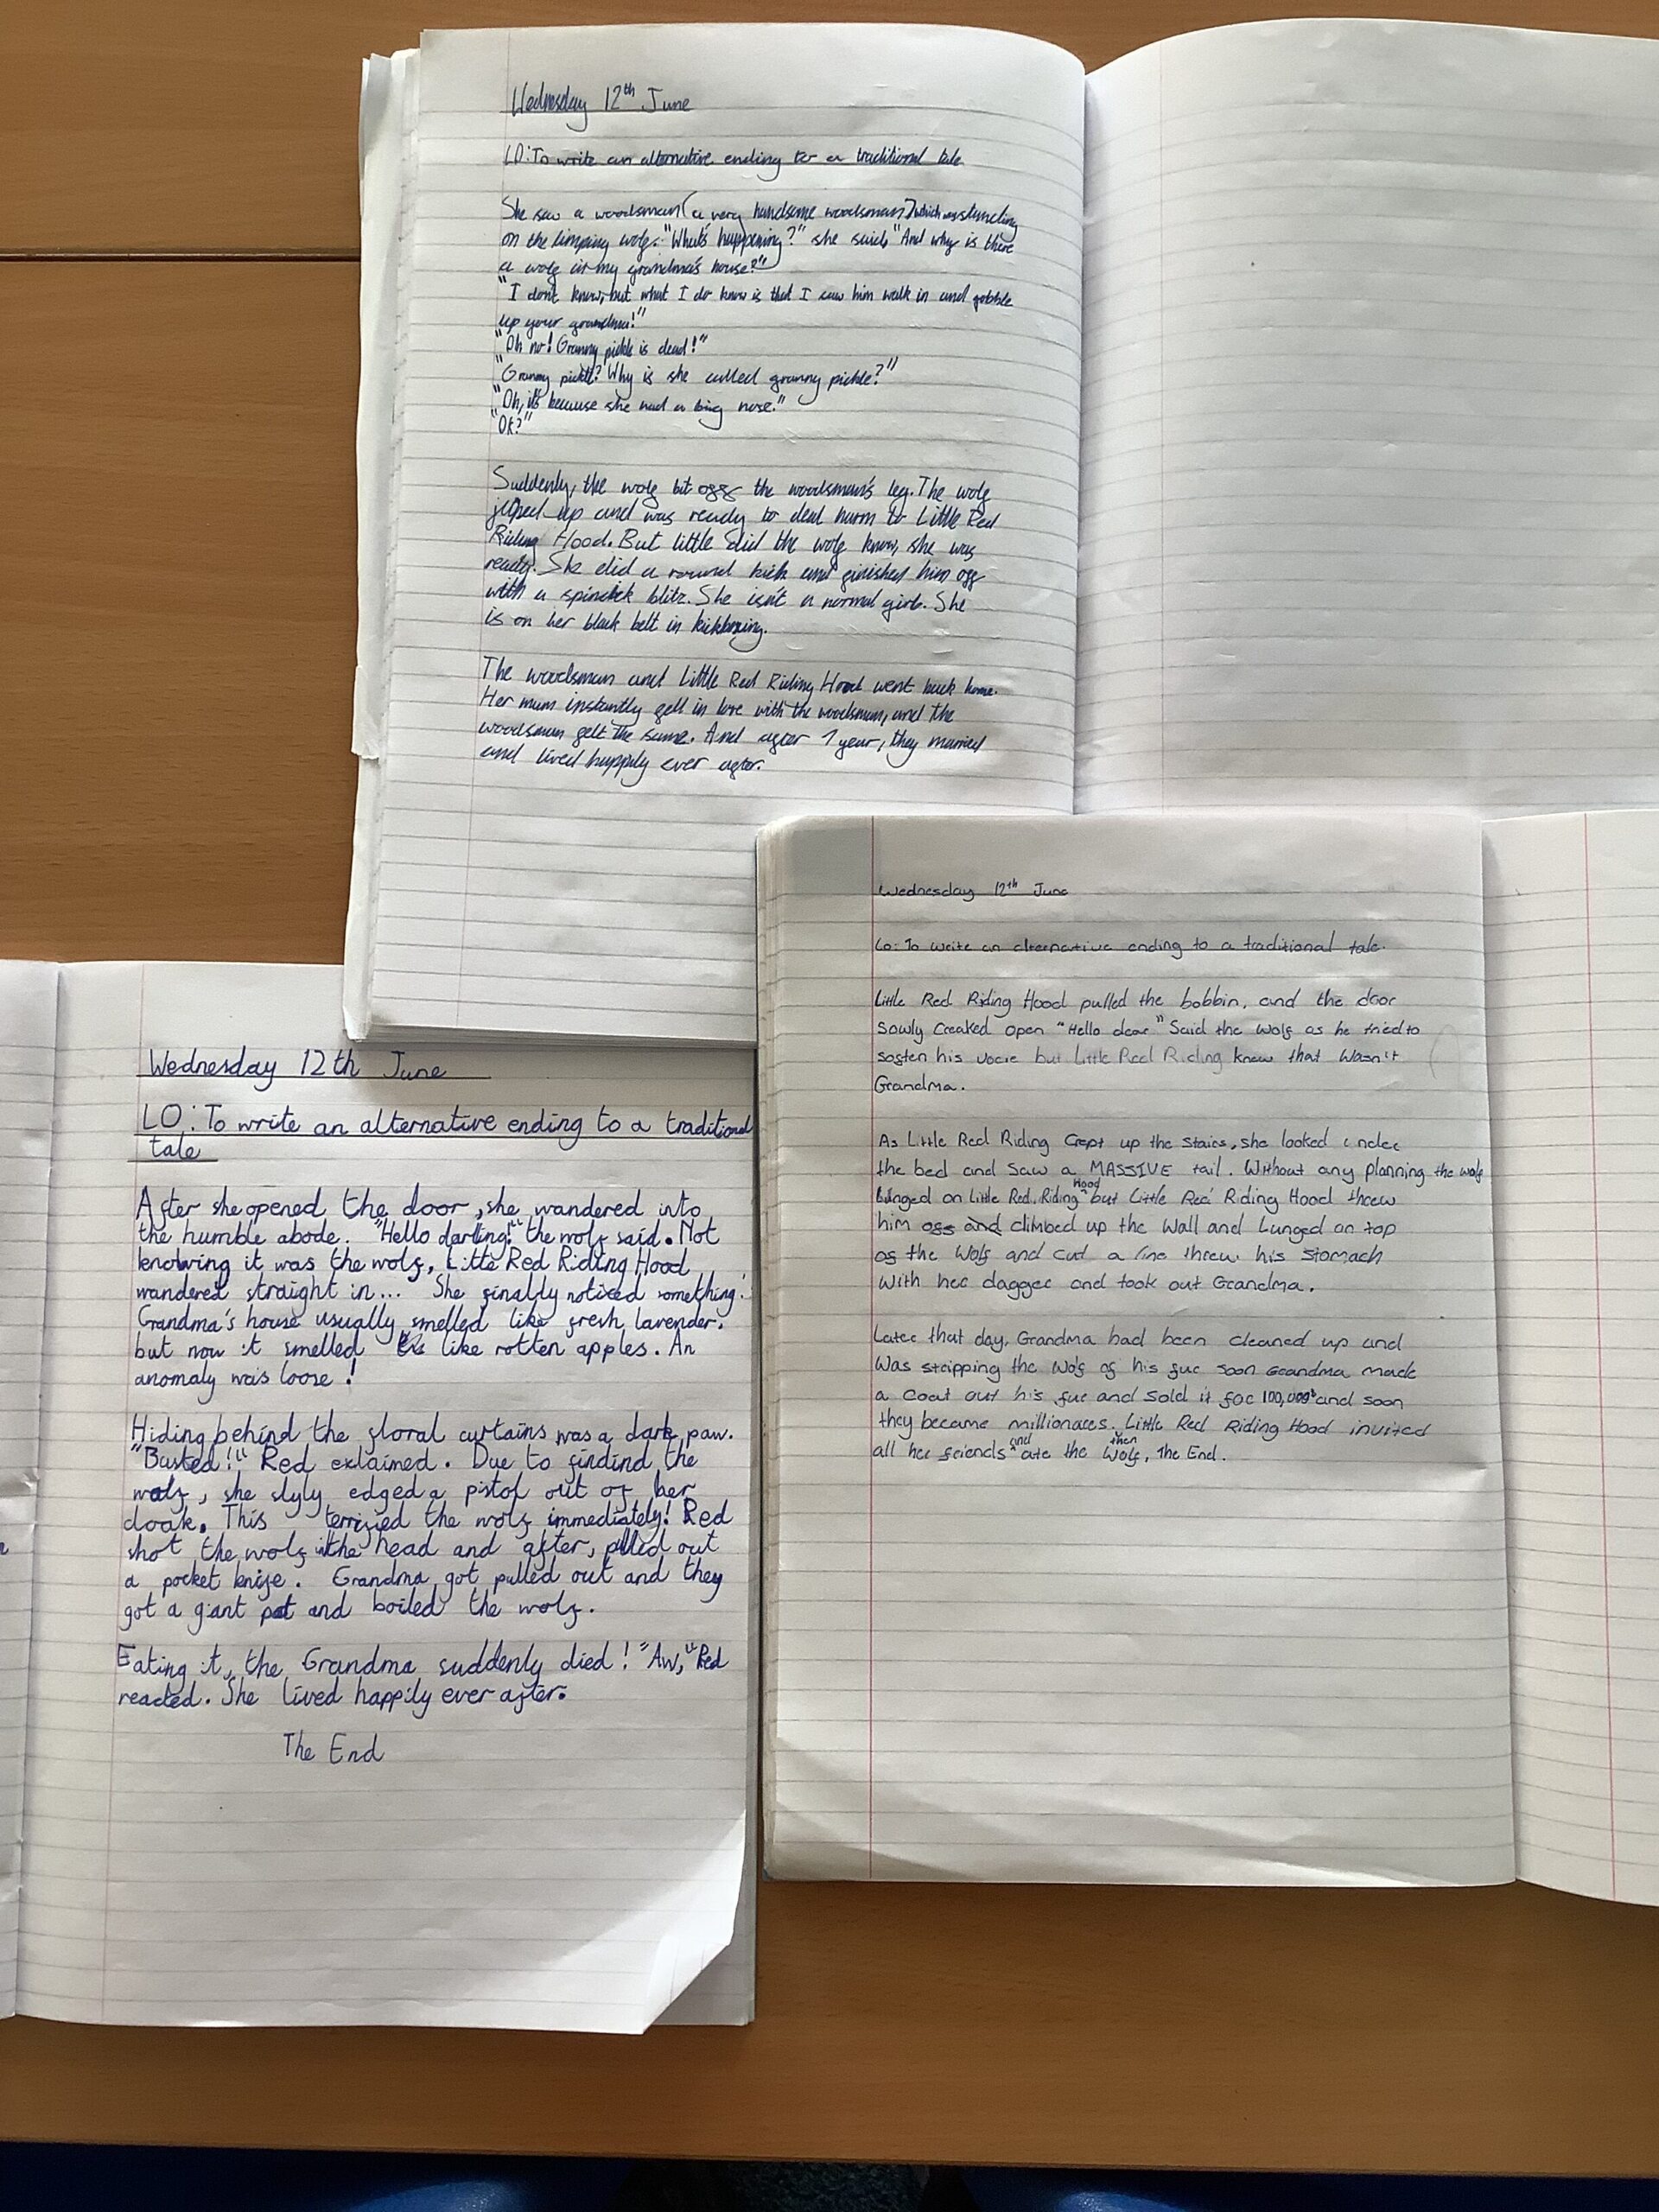 Wednesday 12th June
LO: To write an alternative ending to a traditional tale
She saw a woodsman (a very handsome woodsman) which was standing
on the limping wolf. "What's happening?" she said, "And why is there
a wolf at my grandma's house?"
"I don't know, but what I do know is that I saw him walk in and gobble
up your grandma!"
"Oh no! Granny pickle is dead!"
"Granny pickle? Why is she called granny pickle?"
"Oh, it's because she had a big nose."
"Ok?"
Suddenly, the wolf bit off the woodsman's leg. The wolf
up and was ready to deal harm to Little Red
Riding Hood. But little did the wolf know, she was
ready. She did a round kick and finished him off
with a blitz. She isn't a normal girl. She
is on her black belt in kickboxing.
The woodsman and Little Red Riding Hood went back home.
Her mum instantly fell in love with the woodsman, and the
woodsman felt the same. And after 1 year, they married
and lived happily ever after.
Wednesday 12th June
LO: To write an alternative ending to a traditional
tale
After she opened the door, she wandered into
the humble abode. "Hello darling!" the wolf said. Not
knowing it was the wolf, Little Red Riding Hood
wandered straight in... She finally noticed something!
Grandma's house usually smelled like fresh lavender.
but now it smelled like rotten apples. An
anomaly was loose!
Hiding behind the floral curtains was a dark paw.
"Busted!!" Red exclaimed. Due to findind the
wolf, she slyly edged a pistol out of her
cloak. This terrified the wolf immediately! Red
shot the wolf in the head and after, pulled out
a pocket knife. Grandma got pulled out and they
got a giant pot and boiled the wolf.
Eating it, the Grandma suddenly died! "Aw," Red
reacted. She lived happily ever after.
The End
Wednesday 12th June
Lo: To write an alternative ending to a traditional tale.
Little Red Riding Hood pulled the bobbin, and the door
sowly Creaked open "Hello dear" Said the Wolf as he tried to
soften his vocie but Little Red Riding knew that Wasn't
Grandma.
As Little Red Riding Crept up the Stairs, she looked under
the bed and Saw a MASSIVE tail. Without any planning the wolf
lunged on Little Red Riding Hood but Little Red Riding Hood threw
him off and climbed up the Wall and Lunged on top
of the Wolf and cut a line threw his Stomach
With her dagger and took out Grandma.
Later that day, Grandma had been cleaned up and
Was stripping the Wolf of his fur soon Grandma made
a Coat out his fur and Sold it for and soon
they became millionares. Little Red Riding Hood invited
all her friends and then ate the Wolf, The End.